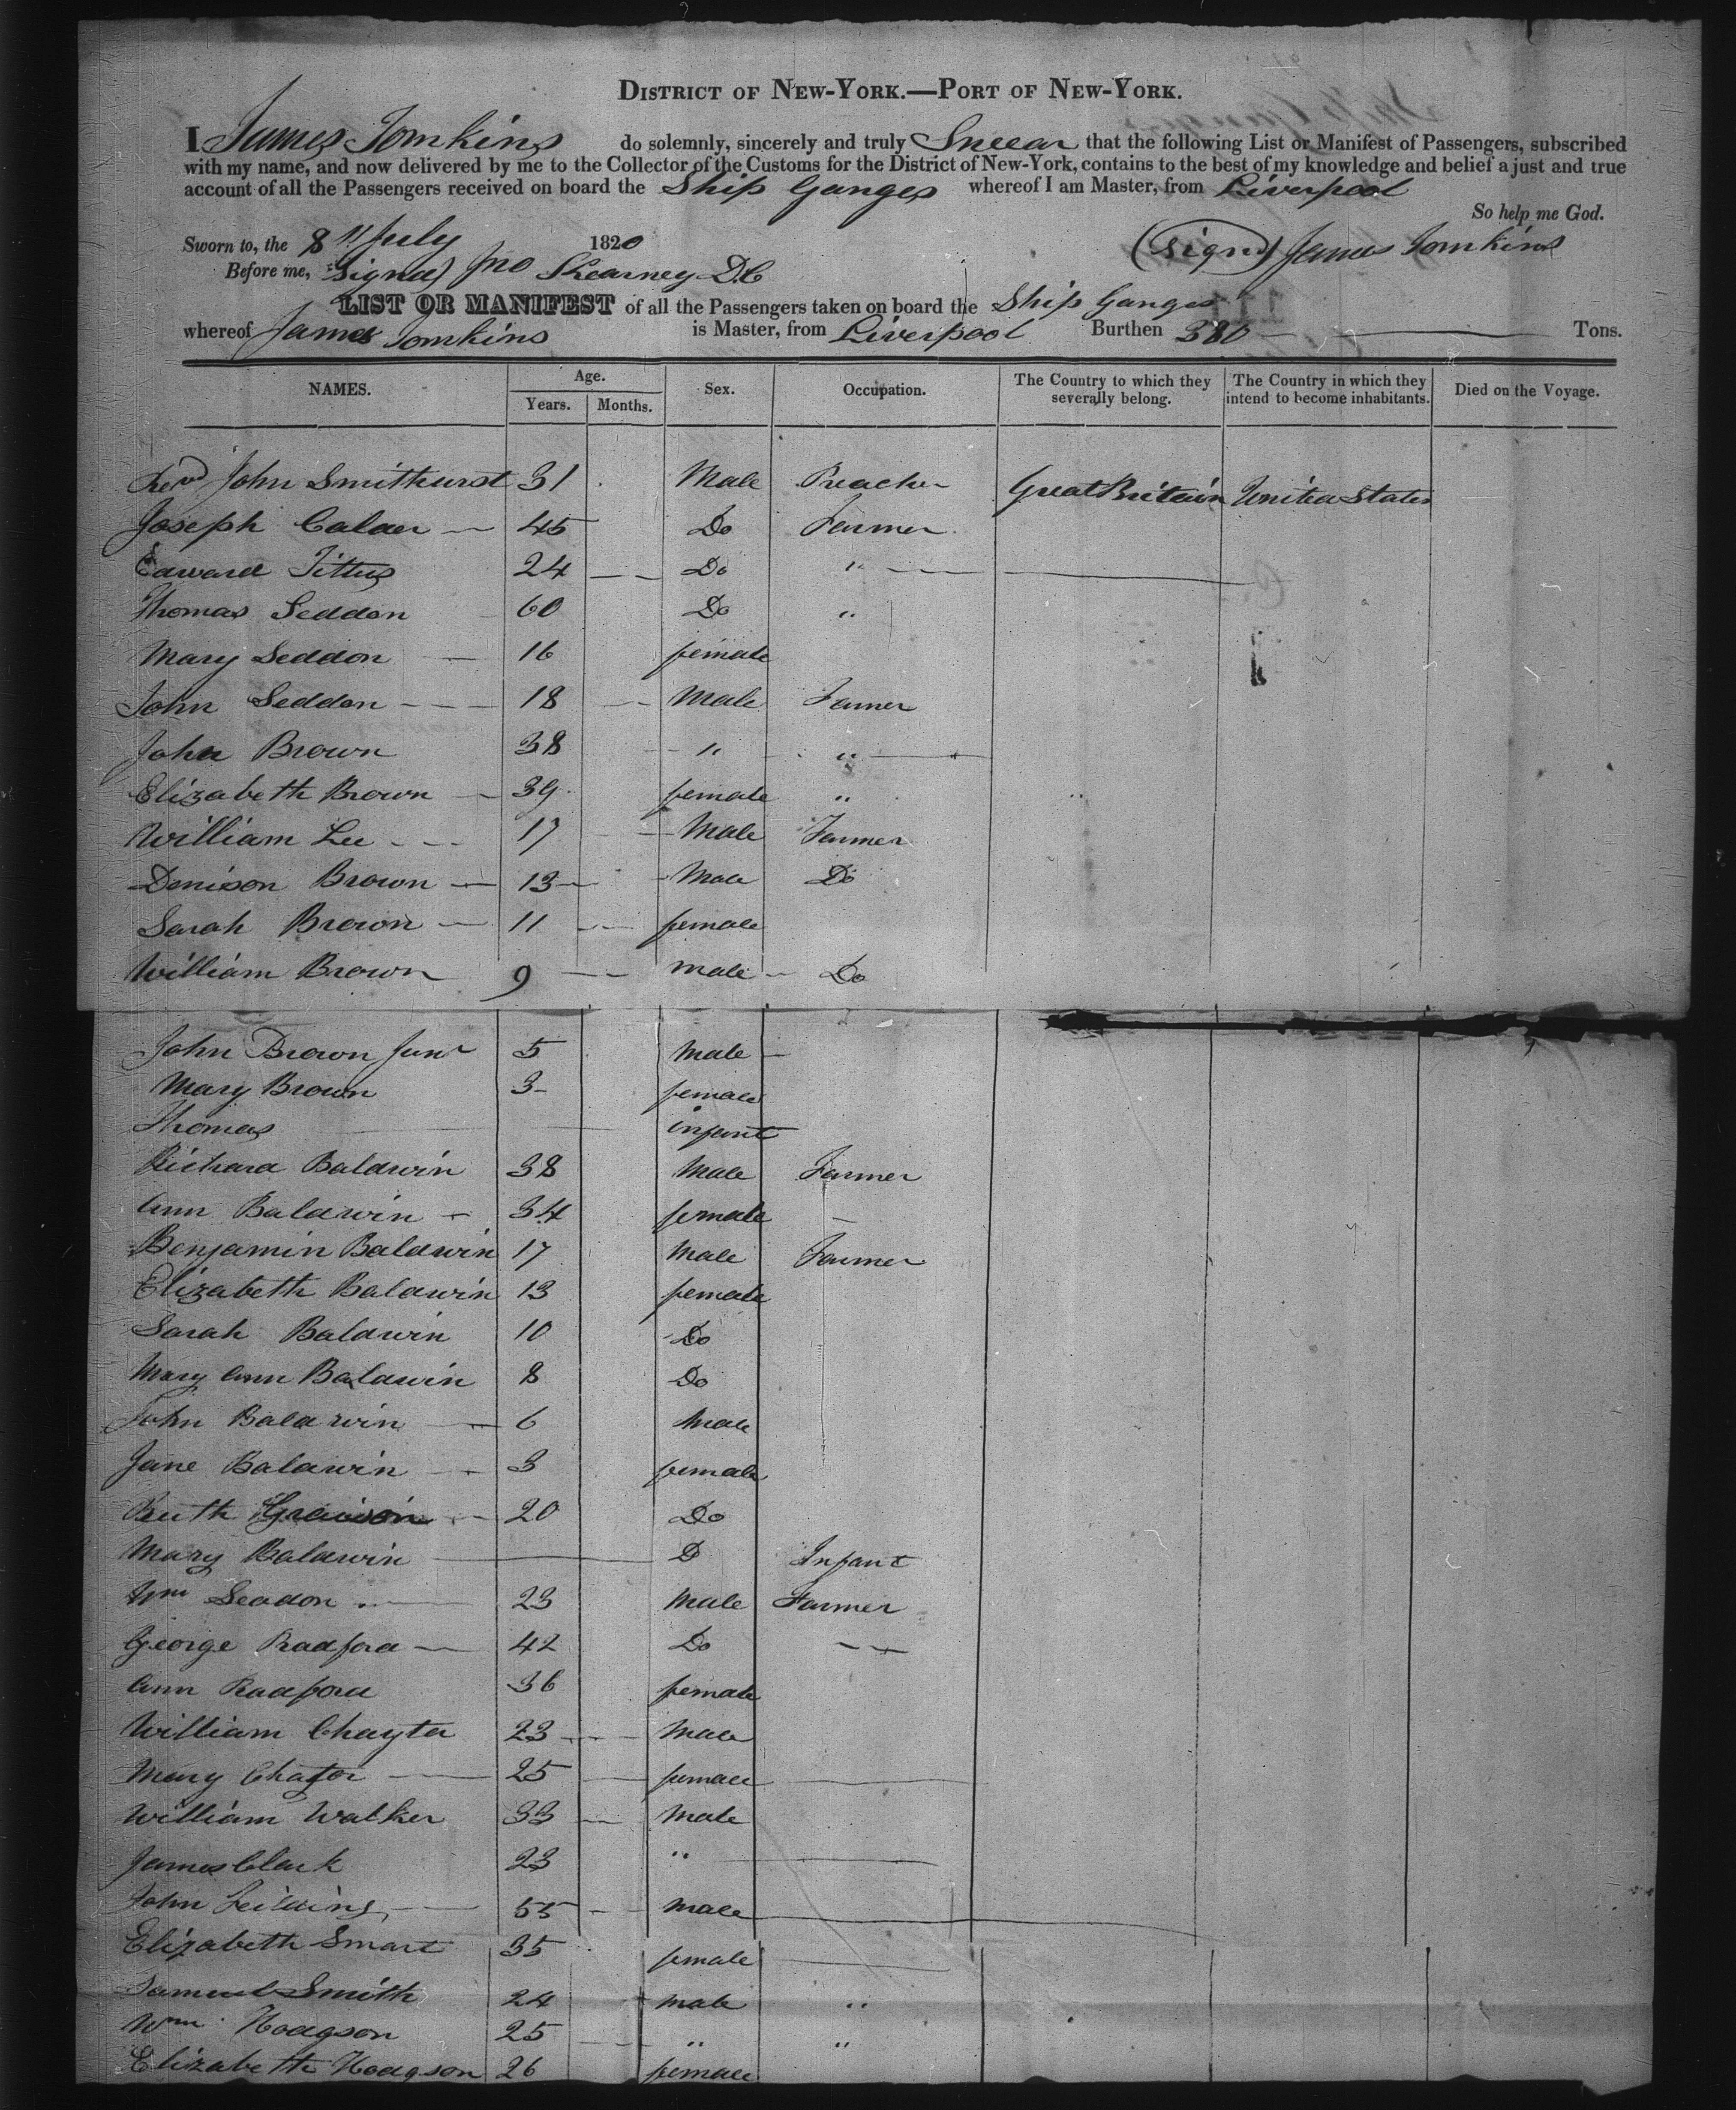 DISTRICT OF NEW-YORK.—PORT OF NEW-YORK.
I James Tomkins do solemnly, sincerely and truly Swear that the following List or Manifest of Passengers, subscribed
with my name, and now delivered by me to the Collector of the Customs for the District of New-York, contains to the best of my knowledge and belief a just and true
account of all the Passengers received on board the Ship Ganges whereof I am Master, from Liverpool
So help me God.
Sworn to, the 8th July 1820 (Signd) James Tomkins
Before me, Signed) Jno Skearney D.C
LIST OR MANIFEST of all the Passengers taken on board the Ship Ganges
whereof James Tomkins is Master, from Liverpool Burthen 380 Tons.
NAMES. Age. Years. Months. Sex. Occupation. The Country to which they severally belong. The Country in which they intend to become inhabitants. Died on the Voyage.
Revd John Smithurst 31 Male Preacher Great Britain United States
Joseph Calder 45 Do Farmer
Edward Tittus 24 Do "
Thomas Seddon 60 Do "
Mary Seddon 16 female
John Seddon 18 Male Farmer
John Brown 38 " "
Elizabeth Brown 39 female "
William Lee 17 Male Farmer
Denison Brown 13 Male Do
Sarah Brown 11 female
William Brown 9 male Do
John Brown Junr 5 Male
Mary Brown 3 female
Thomas infant
Richard Baldwin 38 Male Farmer
Ann Baldwin 34 female
Benjamin Baldwin 17 Male Farmer
Elizabeth Baldwin 13 female
Sarah Baldwin 10 Do
Mary Ann Baldwin 8 Do
John Baldwin 6 Male
Jane Baldwin 3 female
Ruth 20 Do
Mary Baldwin D Infant
Wm Seddon 23 Male Farmer
George Radford 42 Do
Ann Radford 36 female
William Chayter 23 Male
Mary Chafor 25 female
William Walker 33 Male
James Clark 23 "
John 55 Male
Elizabeth Smart 35 female
Samuel Smith 24 male "
Wm Hodgson 25 " "
Elizabeth Hodgson 26 female